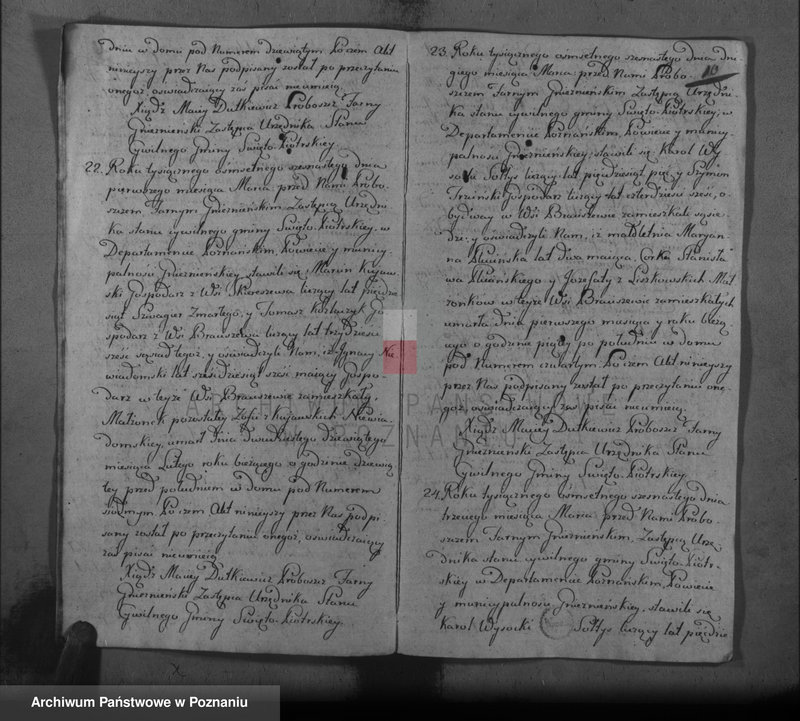 dniu w domu pod Numerem dziewiątym. Poczem Akt
ninieyszy przez Nas podpisany został po przeczytaniu
onegoż oświadczaiący zaś pisać nieumieią.
Xiądz Maciey Dutkiewicz Proboszcz Farny
Gnieznieński Zastępca Urzędnika Stanu
Cywilnego Gminy Święto-Piotrskiey.
22. Roku tysiącznego ośmsetnego szesnastego dnia
pierwszego miesiąca Marca przed Nami Probo-
szczem Farnym Gnieznieńskim Zastępcą Urzędni-
ka stanu cywilnego gminy Święto-Piotrskiey, w
Departamencie Poznańskim, Powiecie y municy-
palności Gnieznieńskiey stawili się Marcin Kujaw-
ski Gospodarz z Wsi liczący lat pięćdzie-
siąt Szwagier Zmarłego, y Tomasz Go-
spodarz z Wsi Braciszewa liczący lat trzydzieści
sześć sąsiad tegoż, y oświadczyli Nam, iż Ignacy Nie-
wiadomski lat sześćdziesiąt sześć maiący Gospo-
darz w teyże Wsi Braciszewie zamieszkały
Małżonek pozostałey Zofii z Kujawskich Niewia-
domskiey, umarł dnia dwudziestego dziewiątego
miesiąca Lutego roku bieżącego o godzinie dziewią-
tey przed południem w domu pod Numerem
siódmym. Poczem Akt ninieyszy przez Nas podpi-
sany został po przeczytaniu onegoż, oświadczaiący
zaś pisać nieumieią.
Xiądz Maciey Dutkiewicz Proboszcz Farny
Gnieznieński Zastępca Urzędnika Stanu
Cywilnego Gminy Święto-Piotrskiey.
10
23. Roku tysiącznego ośmsetnego szesnastego dnia dru-
giego miesiąca Marca przed Nami Probo-
szczem Farnym Gnieznieńskim Zastępcą Urzędni-
ka stanu cywilnego gminy Święto-Piotrskiey, w
Departamencie Poznańskim, Powiecie y municy-
palności Gnieznieńskiey, stawili się Karol Wy-
socki Sołtys liczący lat pięćdziesiąt pięć y Szymon
Gospodarz liczący lat czterdzieści sześć, o-
bydway w Wsi Braciszewie zamieszkali sąsie-
dzi, y oświadczyli Nam, iż małoletnia Maryan-
na lat dwa maiąca, Corka Stanisła-
wa y Jozefaty z Liszkowskich Mał-
żonków w teyże Wsi Braciszewie zamieszkałych
umarła dnia pierwszego miesiąca y roku bieżą-
cego o godzinie piątey po południu w domu
pod Numerem czwartym. Poczem Akt ninieyszy
przez Nas podpisany został po przeczytaniu one-
goż, oświadczaiący zaś pisać nieumieią.
Xiądz Maciey Dutkiewicz Proboszcz Farny
Gnieznieński Zastępca Urzędnika Stanu
Cywilnego Gminy Święto-Piotrskiey.
24. Roku tysiącznego ośmsetnego szesnastego dnia
trzeciego miesiąca Marca przed Nami Probo-
szczem Farnym Gnieznieńskim, Zastępcą Urzę-
dnika stanu cywilnego gminy Święto-Piotr-
skiey w Departamencie Poznańskim, Powiecie
y municypalności Gnieznieńskiey, stawili się
Karol Wysocki Sołtys liczący lat pięćdzie-
Archiwum Państwowe w Poznaniu